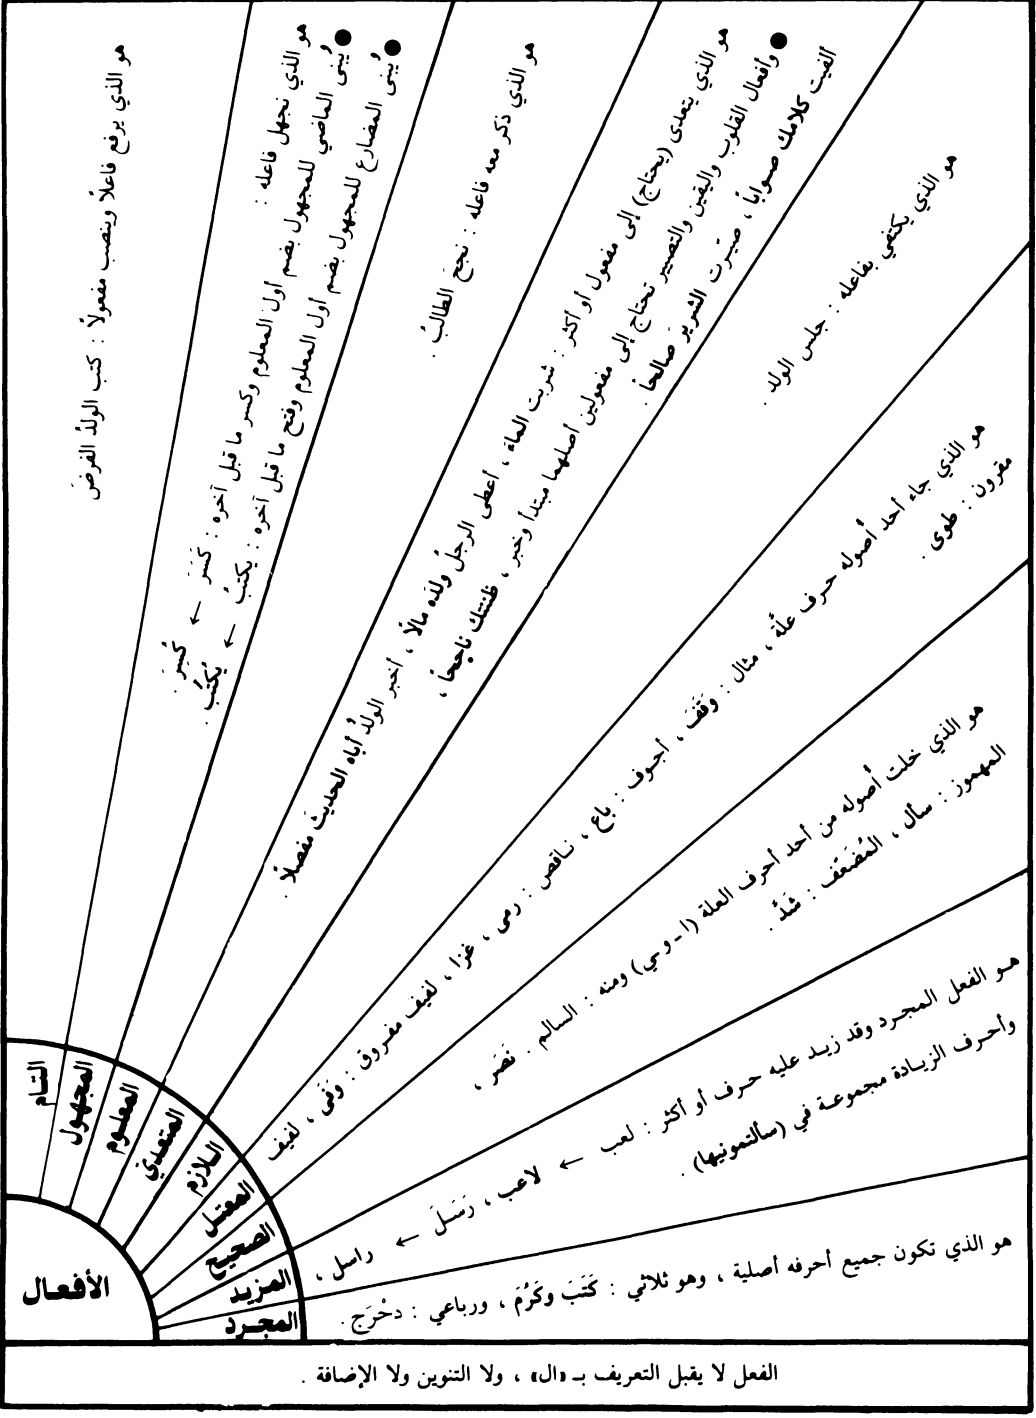 الأفعال
التـام
هو الذي يرفع فاعلًا وينصب مفعولًا : كتب الولدُ الفرضَ
المجهول
هو الذي نجهل فاعله :
● يُبنى الماضي للمجهول بضم أول المعلوم وكسر ما قبل آخره : كَسَرَ ← كُسِرَ .
● يُبنى المضارع للمجهول بضم أول المعلوم وفتح ما قبل آخره : يكتبُ ← يُكتَبُ .
المعلوم
هو الذي ذكر معه فاعله : نجحَ الطالبُ .
المتعدي
هو الذي يتعدى (يحتاج) إلى مفعول أو أكثر : شربت الماءَ ، أعطى الرجلُ ولدَه مالًا ، أخبر الولدُ أباه الحديثَ مفصلًا .
● وأفعال القلوب واليقين والتصيير تحتاج إلى مفعولين أصلهما مبتدأ وخبر ، ظننتك ناجحاً ،
ألفيت كلامك صواباً ، صيّرت الشريرَ صالحاً .
اللازم
هو الذي يكتفي بفاعله : جلس الولد .
المعتـل
هو الذي جاء أحد أصوله حرف علّة ، مثال : وَقَفَ ، أجوف : باع ، ناقص : رمى ، غزا ، لفيف مفروق : وَفَى ، لفيف
مقرون : طوى .
الصحيح
هو الذي خلت أصوله من أحد أحرف العلة (ا - و - ي) ومنه : السالم . نَصَر ،
المهموز : سأل ، المُضَعّف : شَدَّ .
المزيد
هـو الفعل المجرد وقد زيـد عليه حـرف أو أكثر : لعب ← لاعب ، رَسَـلَ ← راسل ،
وأحـرف الزيـادة مجموعـة في (سألتمونيها) .
المجـرد
هو الذي تكون جميع أحرفه أصلية ، وهو ثلاثي : كَتَبَ وكَرُمَ ، ورباعي : دحْرَج .
الفعل لا يقبل التعريف بـ «ال» ، ولا التنوين ولا الإضافة .